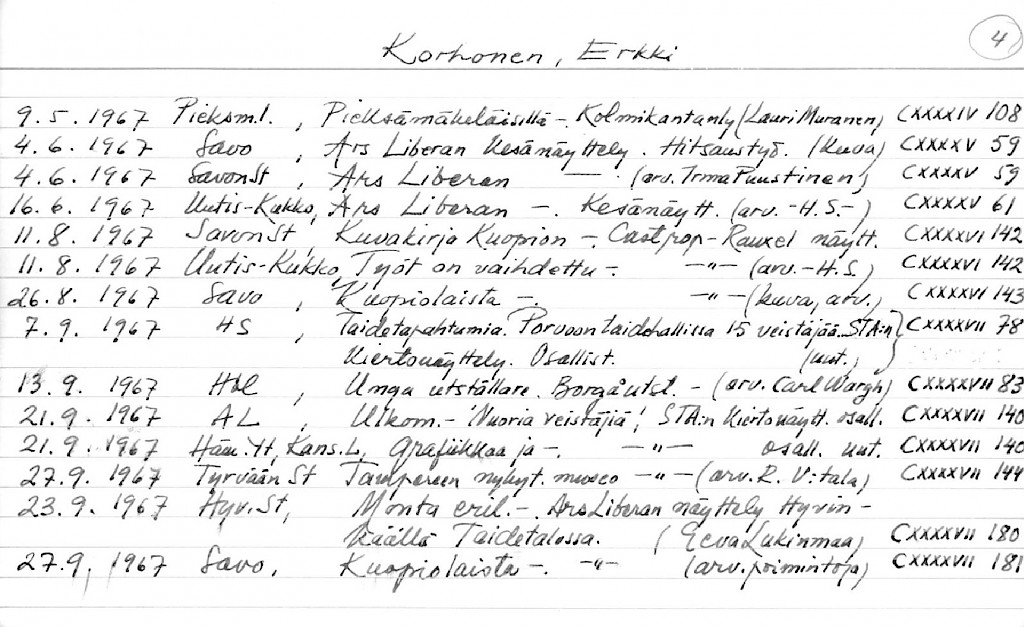 4
Korhonen, Erkki
9.5. 1967 Pieksm.l. , Pieksämäkeläisillä -. Kolmikantanly (Lauri Muranen) CXXXXIV 108
4.6. 1967 Savo , Ars Liberan Kesänäyttely. Hitsaustyö. (kuva) CXXXXV 59
4.6. 1967 SavonSt , Ars Liberan — " — . (arv. Irma Puustinen) CXXXXV 59
16.6. 1967 Uutis-Kukko, Ars Liberan -. Kesänäytt. (arv. -H.S.-) CXXXXV 61
11.8. 1967 SavonSt , Kuvakirja Kuopion -. Castrop-Rauxel näytt. CXXXXVI 142
11.8. 1967 Uutis-Kukko, Työt on vaihdettu -. -"- (arv. -H.S.) CXXXXVI 142
26.8. 1967 Savo , Kuopiolaista -. -"- (kuva, arv.) CXXXXVI 143
7.9. 1967 HS , Taidetapahtumia. Porvoon taidehallissa 15 veistäjää. STA:n CXXXXVII 78
Kiertonäyttely. Osallist. (uut.)
13.9. 1967 Hbl , Unga utställare. Borgå utst. - (arv. Carl Wargh) CXXXXVII 83
21.9. 1967 AL , Ulkom. - 'Nuoria veistäjiä', STA:n kiertonäytt. osall. CXXXXVII 140
21.9. 1967 Häm.Yt, Kans.L, Grafiikkaa ja -. -"- osall. uut. CXXXXVII 140
27.9. 1967 TyrväänSt Tampereen nykyt. museo -"- (arv. R. V:tala) CXXXXVII 144
23.9. 1967 Hyv.St, Monta eril. -. Ars Liberan näyttely Hyvin-
käällä Taidetalossa. (Eeva Lukinmaa) CXXXXVII 180
27.9. 1967 Savo, Kuopiolaista -. -"- (arv. poimintoja) CXXXXVII 181